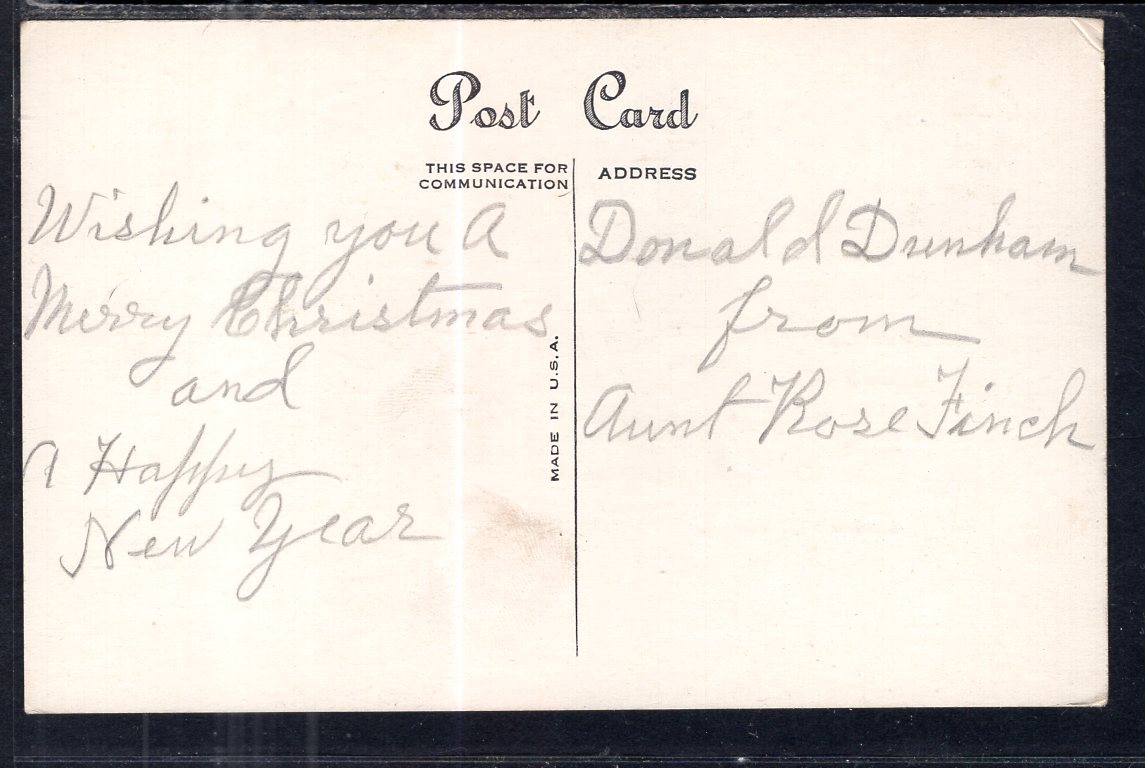 Post Card
THIS SPACE FOR
COMMUNICATION
ADDRESS
Wishing you A
Merry Christmas
and
A Happy
New Year
MADE IN U.S.A.
Donald Dunham
from
Aunt Rose Finch